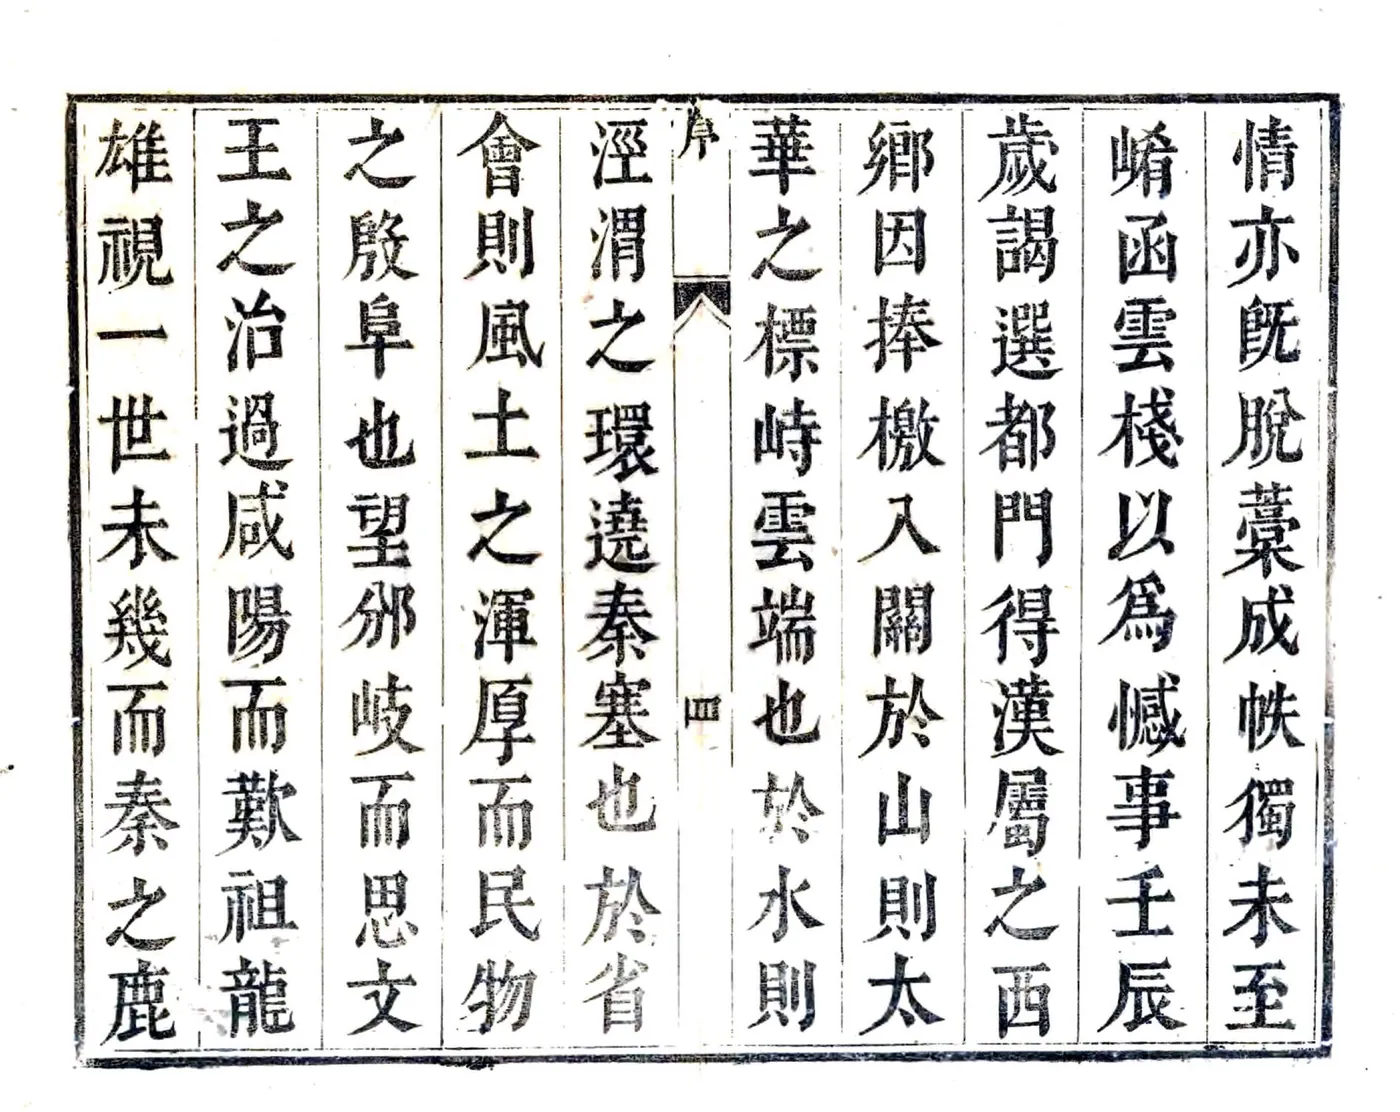 情亦旣脫藁成帙獨未至
崤函雲棧以爲憾事壬辰
歲謁選都門得漢屬之西
鄉因捧檄入關於山則太
華之標峙雲端也於水則
序
四
涇渭之環遶秦塞也於省
會則風土之渾厚而民物
之殷阜也望邠岐而思文
王之治過咸陽而歎祖龍
雄視一世未幾而秦之鹿